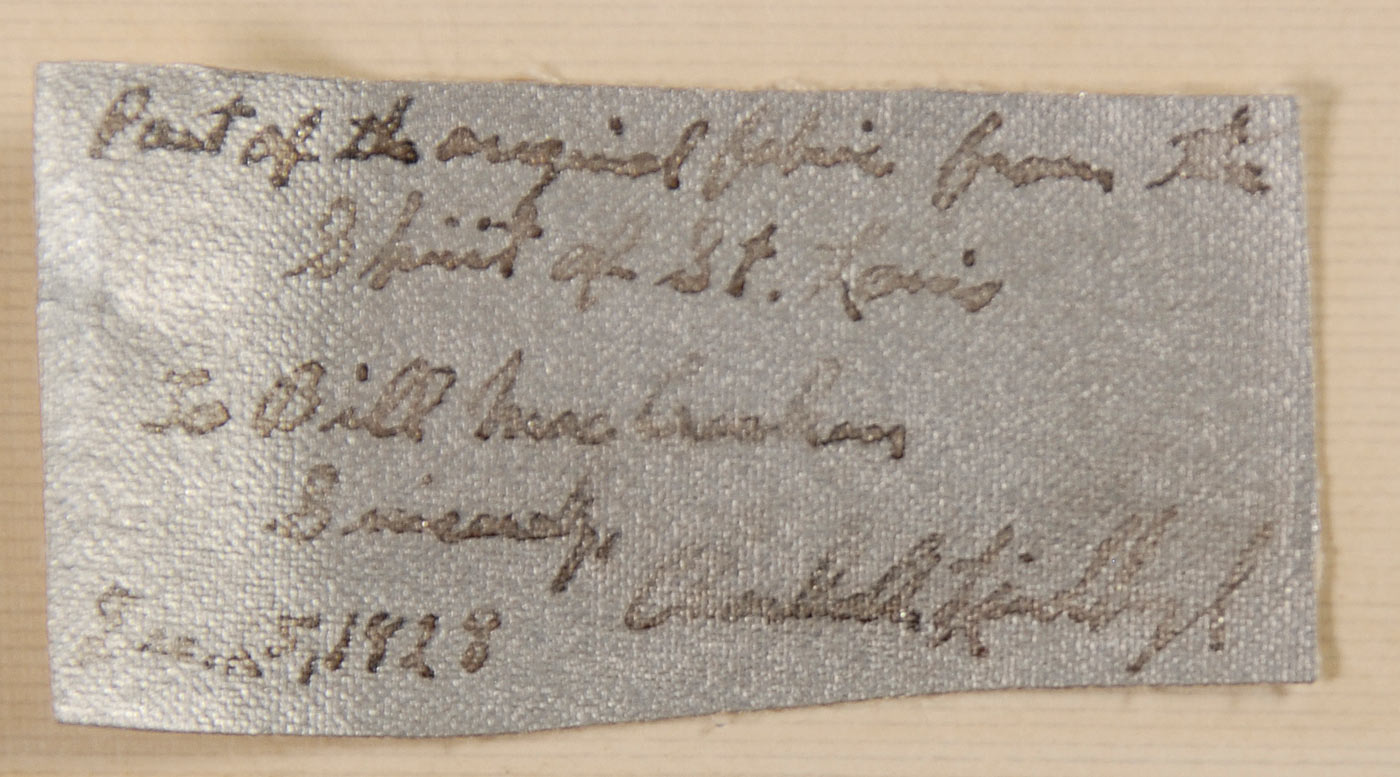 Part of the original fabric from the
Spirit of St. Louis
To Bill Mac
Sincerely,
Charles A. Lindbergh
5, 1928